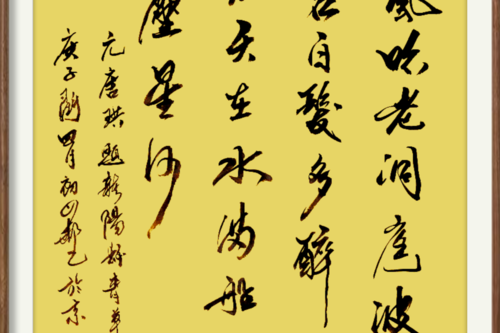 風吹老洞庭波
君白髮多醉
天在水滿船
壓星河
元唐珙題龍陽縣青草
庚子閏四月初於京